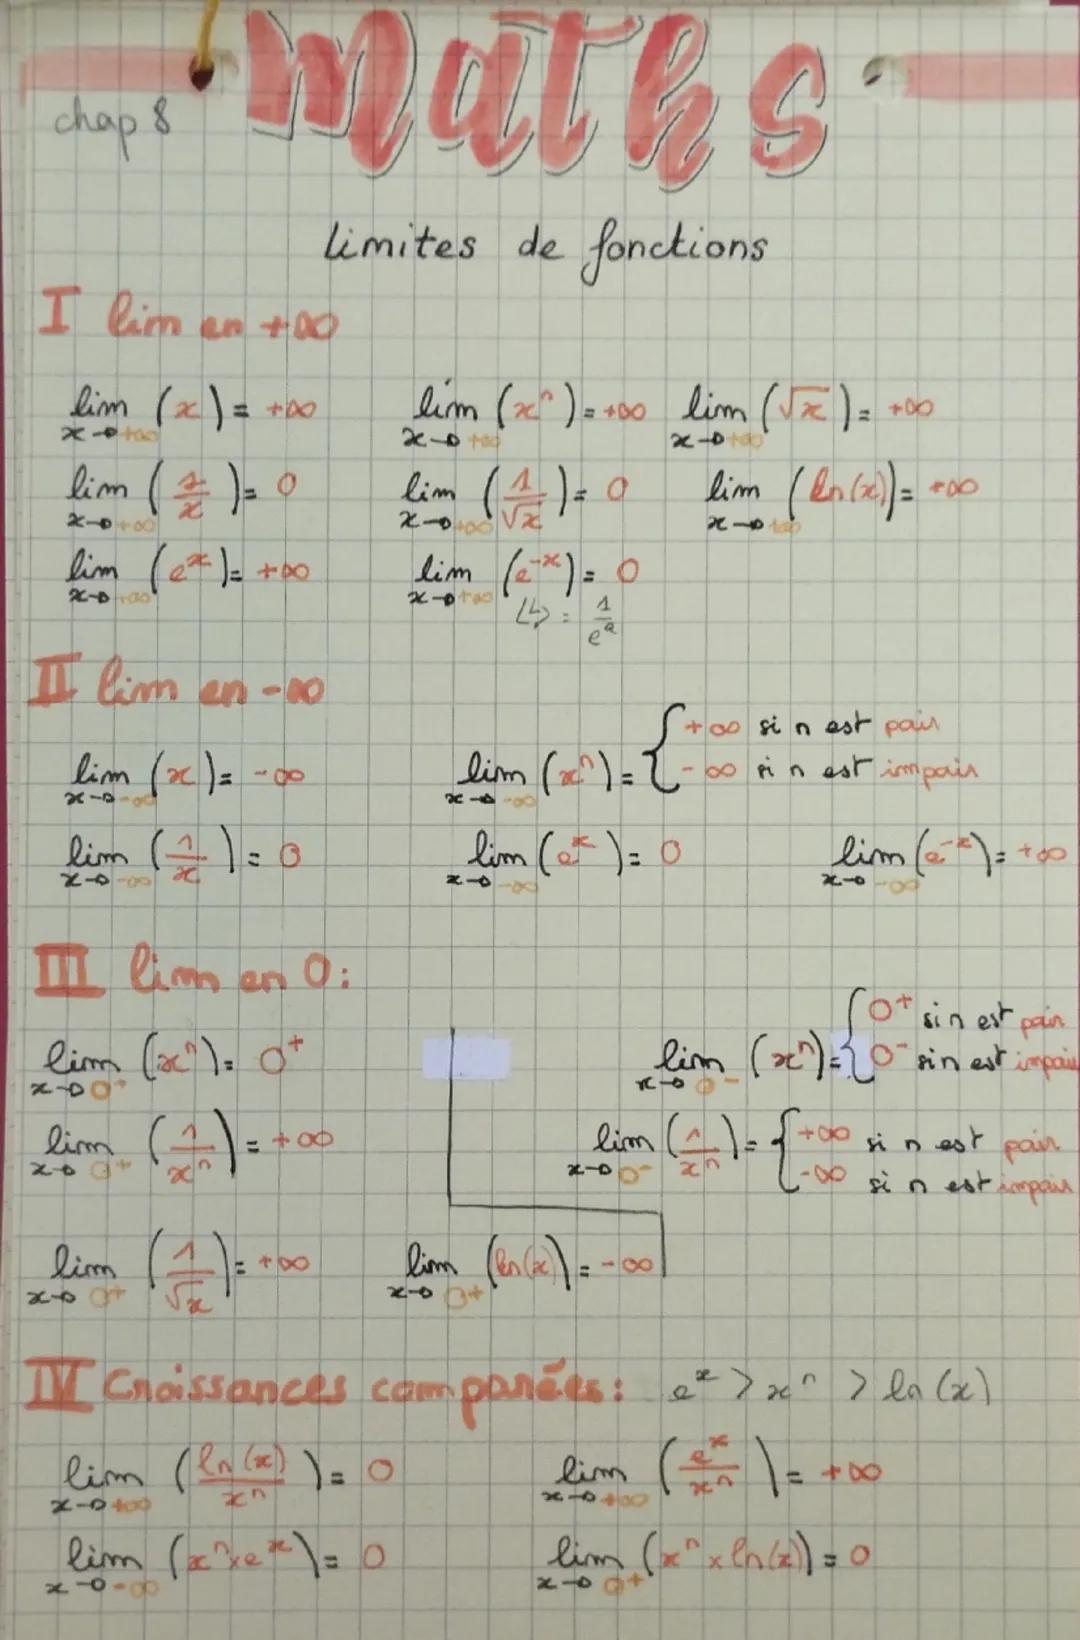 Maths
chap 8
Limites de fonctions
I lim en +∞
lim x→+∞ (x) = +∞   lim x→+∞ (xⁿ) = +∞   lim x→+∞ (√x) = +∞
lim x→+∞ (1/x) = 0   lim x→+∞ (1/√x) = 0   lim x→+∞ (ln(x)) = +∞
lim x→+∞ (eˣ) = +∞   lim x→+∞ (e⁻ˣ) = 0
↳ = 1/eᵃ
II lim en -∞
lim x→-∞ (x) = -∞   lim x→-∞ (xⁿ) = { +∞ si n est pair
-∞ si n est impair
lim x→-∞ (1/x) = 0   lim x→-∞ (eˣ) = 0   lim x→-∞ (e⁻ˣ) = +∞
III lim en 0:
lim x→0⁺ (xⁿ) = 0⁺   lim x→0⁻ (xⁿ) = { 0⁺ si n est pair
0⁻ si n est impair
lim x→0⁺ (1/xⁿ) = +∞   lim x→0⁻ (1/xⁿ) = { +∞ si n est pair
-∞ si n est impair
lim x→0⁺ (1/√x) = +∞   lim x→0⁺ (ln(x)) = -∞
IV Croissances comparées: eˣ > xⁿ > ln(x)
lim x→+∞ (ln(x)/xⁿ) = 0   lim x→+∞ (eˣ/xⁿ) = +∞
lim x→-∞ (xⁿ×eˣ) = 0   lim x→0⁺ (xⁿ × ln(x)) = 0